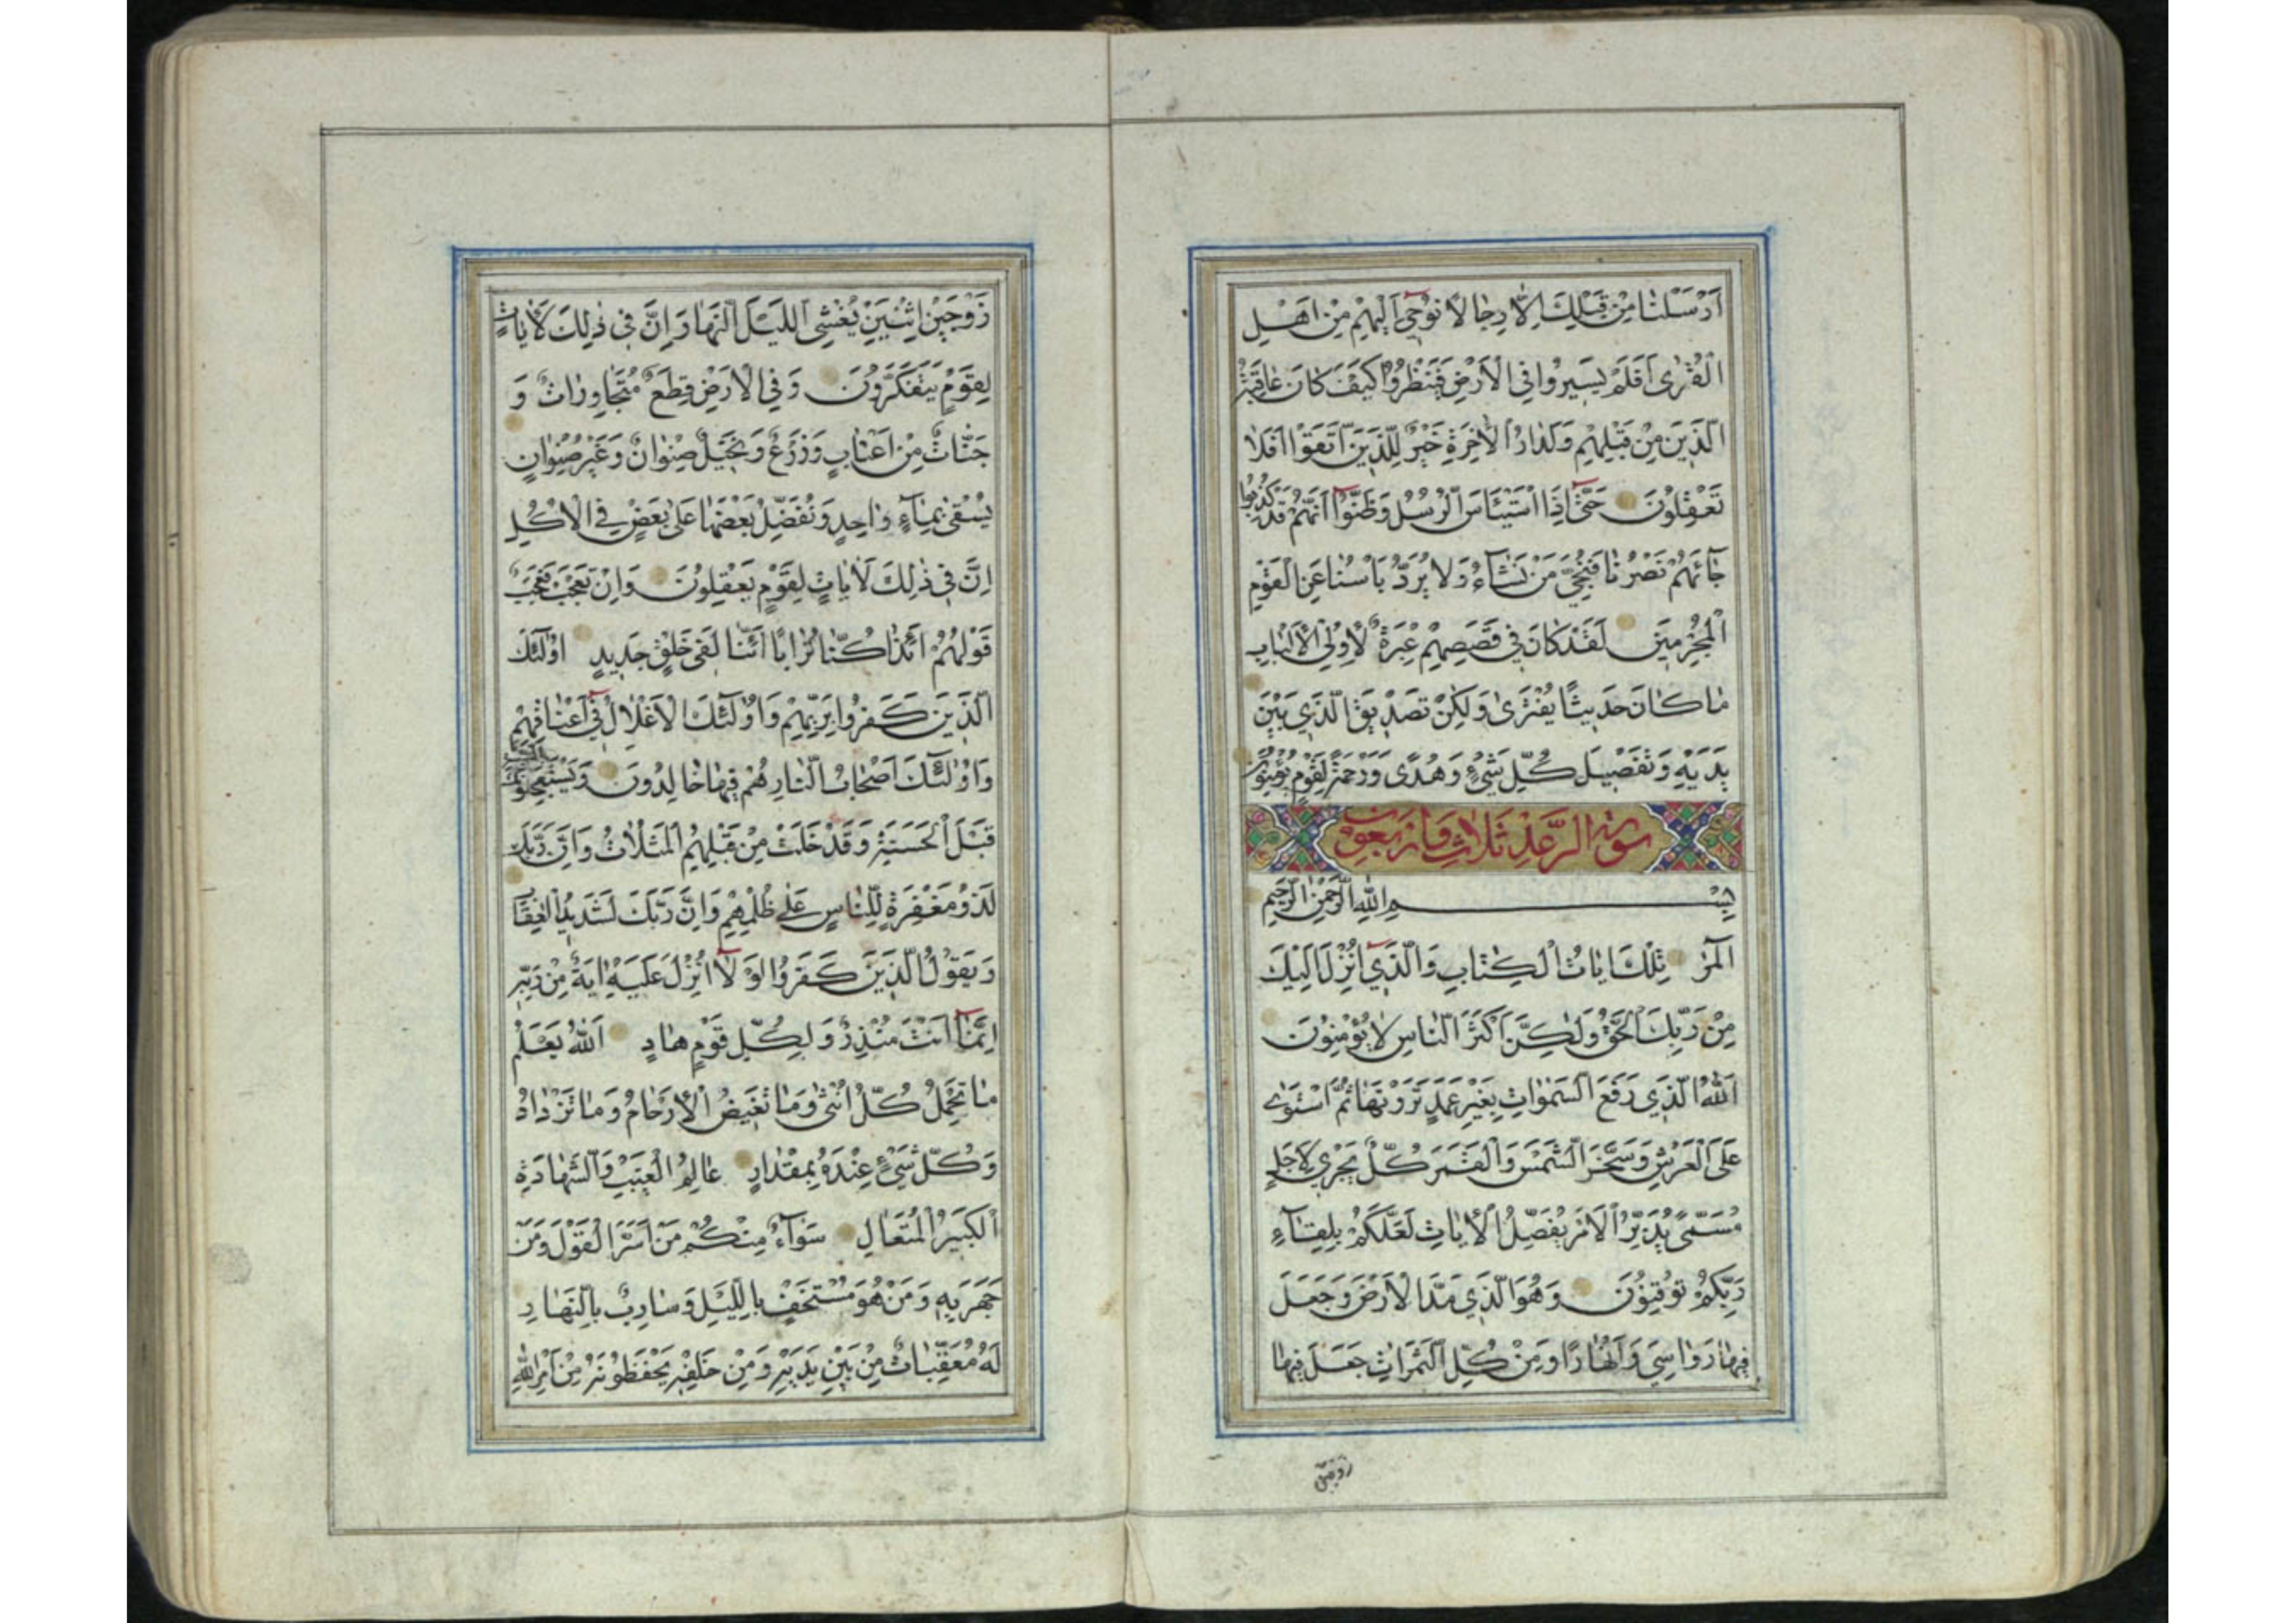 اَرْسَلْنٰا مِنْ قَبْلِكَ اِلّٰا رِجٰالًا نُوحٰٓي اِلَيْهِمْ مِنْ اَهْلِ
الْقُرٰى اَفَلَمْ يَسٖيرُوا فِي الْاَرْضِ فَيَنْظُرُوا كَيْفَ كٰانَ عٰاقِبَةُ
الَّذٖينَ مِنْ قَبْلِهِمْ وَلَدٰارُ الْاٰخِرَةِ خَيْرٌ لِلَّذٖينَ اتَّقَوْا اَفَلٰا
تَعْقِلُونَ حَتّٰٓى اِذَا اسْتَيْئَاسَ الرُّسُلُ وَظَنُّوٓا اَنَّهُمْ قَدْ كُذِبُوا
جٰٓائَهُمْ نَصْرُنٰا فَنُجِّيَ مَنْ نَشٰٓاءُ وَلٰا يُرَدُّ بَاْسُنٰا عَنِ الْقَوْمِ
الْمُجْرِمٖينَ لَقَدْ كٰانَ فٖي قَصَصِهِمْ عِبْرَةٌ لِاُولِي الْاَلْبٰابِ
مٰا كٰانَ حَدٖيثًا يُفْتَرٰى وَلٰكِنْ تَصْدٖيقَ الَّذٖي بَيْنَ
يَدَيْهِ وَتَفْصٖيلَ كُلِّ شَيْءٍ وَهُدًى وَرَحْمَةً لِقَوْمٍ يُؤْمِنُونَ
سورة الرَّعْدِ ثَلٰاثٌ وَاَرْبَعُونَ
بِسْمِ اللّٰهِ الرَّحْمٰنِ الرَّحٖيمِ
الٓمٓرٰ تِلْكَ اٰيٰاتُ الْكِتٰابِ وَالَّذٖٓي اُنْزِلَ اِلَيْكَ
مِنْ رَبِّكَ الْحَقُّ وَلٰكِنَّ اَكْثَرَ النّٰاسِ لٰا يُؤْمِنُونَ
اَللّٰهُ الَّذٖي رَفَعَ السَّمٰوٰاتِ بِغَيْرِ عَمَدٍ تَرَوْنَهٰا ثُمَّ اسْتَوٰى
عَلَى الْعَرْشِ وَسَخَّرَ الشَّمْسَ وَالْقَمَرَ كُلٌّ يَجْرٖي لِاَجَلٍ
مُسَمًّى يُدَبِّرُ الْاَمْرَ يُفَصِّلُ الْاٰيٰاتِ لَعَلَّكُمْ بِلِقٰٓاءِ
رَبِّكُمْ تُوقِنُونَ وَهُوَ الَّذٖي مَدَّ الْاَرْضَ وَجَعَلَ
فٖيهٰا رَوٰاسِيَ وَاَنْهٰارًا وَمِنْ كُلِّ الثَّمَرٰاتِ جَعَلَ فٖيهٰا
زوجين
زَوْجَيْنِ اثْنَيْنِ يُغْشِي اللَّيْلَ النَّهٰارَ اِنَّ فٖي ذٰلِكَ لَاٰيٰاتٍ
لِقَوْمٍ يَتَفَكَّرُونَ وَفِي الْاَرْضِ قِطَعٌ مُتَجٰاوِرٰاتٌ وَ
جَنّٰاتٌ مِنْ اَعْنٰابٍ وَزَرْعٌ وَنَخٖيلٌ صِنْوٰانٌ وَغَيْرُ صِنْوٰانٍ
يُسْقٰى بِمٰٓاءٍ وٰاحِدٍ وَنُفَضِّلُ بَعْضَهٰا عَلٰى بَعْضٍ فِي الْاُكُلِ
اِنَّ فٖي ذٰلِكَ لَاٰيٰاتٍ لِقَوْمٍ يَعْقِلُونَ وَاِنْ تَعْجَبْ فَعَجَبٌ
قَوْلُهُمْ اَئِذٰا كُنّٰا تُرٰابًا اَئِنّٰا لَفٖي خَلْقٍ جَدٖيدٍ اُولٰٓئِكَ
الَّذٖينَ كَفَرُوا بِرَبِّهِمْ وَاُولٰٓئِكَ الْاَغْلٰالُ فٖٓي اَعْنٰاقِهِمْ
وَاُولٰٓئِكَ اَصْحٰابُ النّٰارِ هُمْ فٖيهٰا خٰالِدُونَ وَيَسْتَعْجِلُونَكَ بِالسَّيِّئَةِ
قَبْلَ الْحَسَنَةِ وَقَدْ خَلَتْ مِنْ قَبْلِهِمُ الْمَثُلٰاتُ وَاِنَّ رَبَّكَ
لَذُو مَغْفِرَةٍ لِلنّٰاسِ عَلٰى ظُلْمِهِمْ وَاِنَّ رَبَّكَ لَشَدٖيدُ الْعِقٰابِ
وَيَقُولُ الَّذٖينَ كَفَرُوا لَوْ لٰٓا اُنْزِلَ عَلَيْهِ اٰيَةٌ مِنْ رَبِّهٖ
اِنَّمٰٓا اَنْتَ مُنْذِرٌ وَلِكُلِّ قَوْمٍ هٰادٍ اَللّٰهُ يَعْلَمُ
مٰا تَحْمِلُ كُلُّ اُنْثٰى وَمٰا تَغٖيضُ الْاَرْحٰامُ وَمٰا تَزْدٰادُ
وَكُلُّ شَيْءٍ عِنْدَهُ بِمِقْدٰارٍ عٰالِمُ الْغَيْبِ وَالشَّهٰادَةِ
الْكَبٖيرُ الْمُتَعٰالِ سَوٰٓاءٌ مِنْكُمْ مَنْ اَسَرَّ الْقَوْلَ وَمَنْ
جَهَرَ بِهٖ وَمَنْ هُوَ مُسْتَخْفٍ بِاللَّيْلِ وَسٰارِبٌ بِالنَّهٰارِ
لَهُ مُعَقِّبٰاتٌ مِنْ بَيْنِ يَدَيْهِ وَمِنْ خَلْفِهٖ يَحْفَظُونَهُ مِنْ اَمْرِ اللّٰهِ